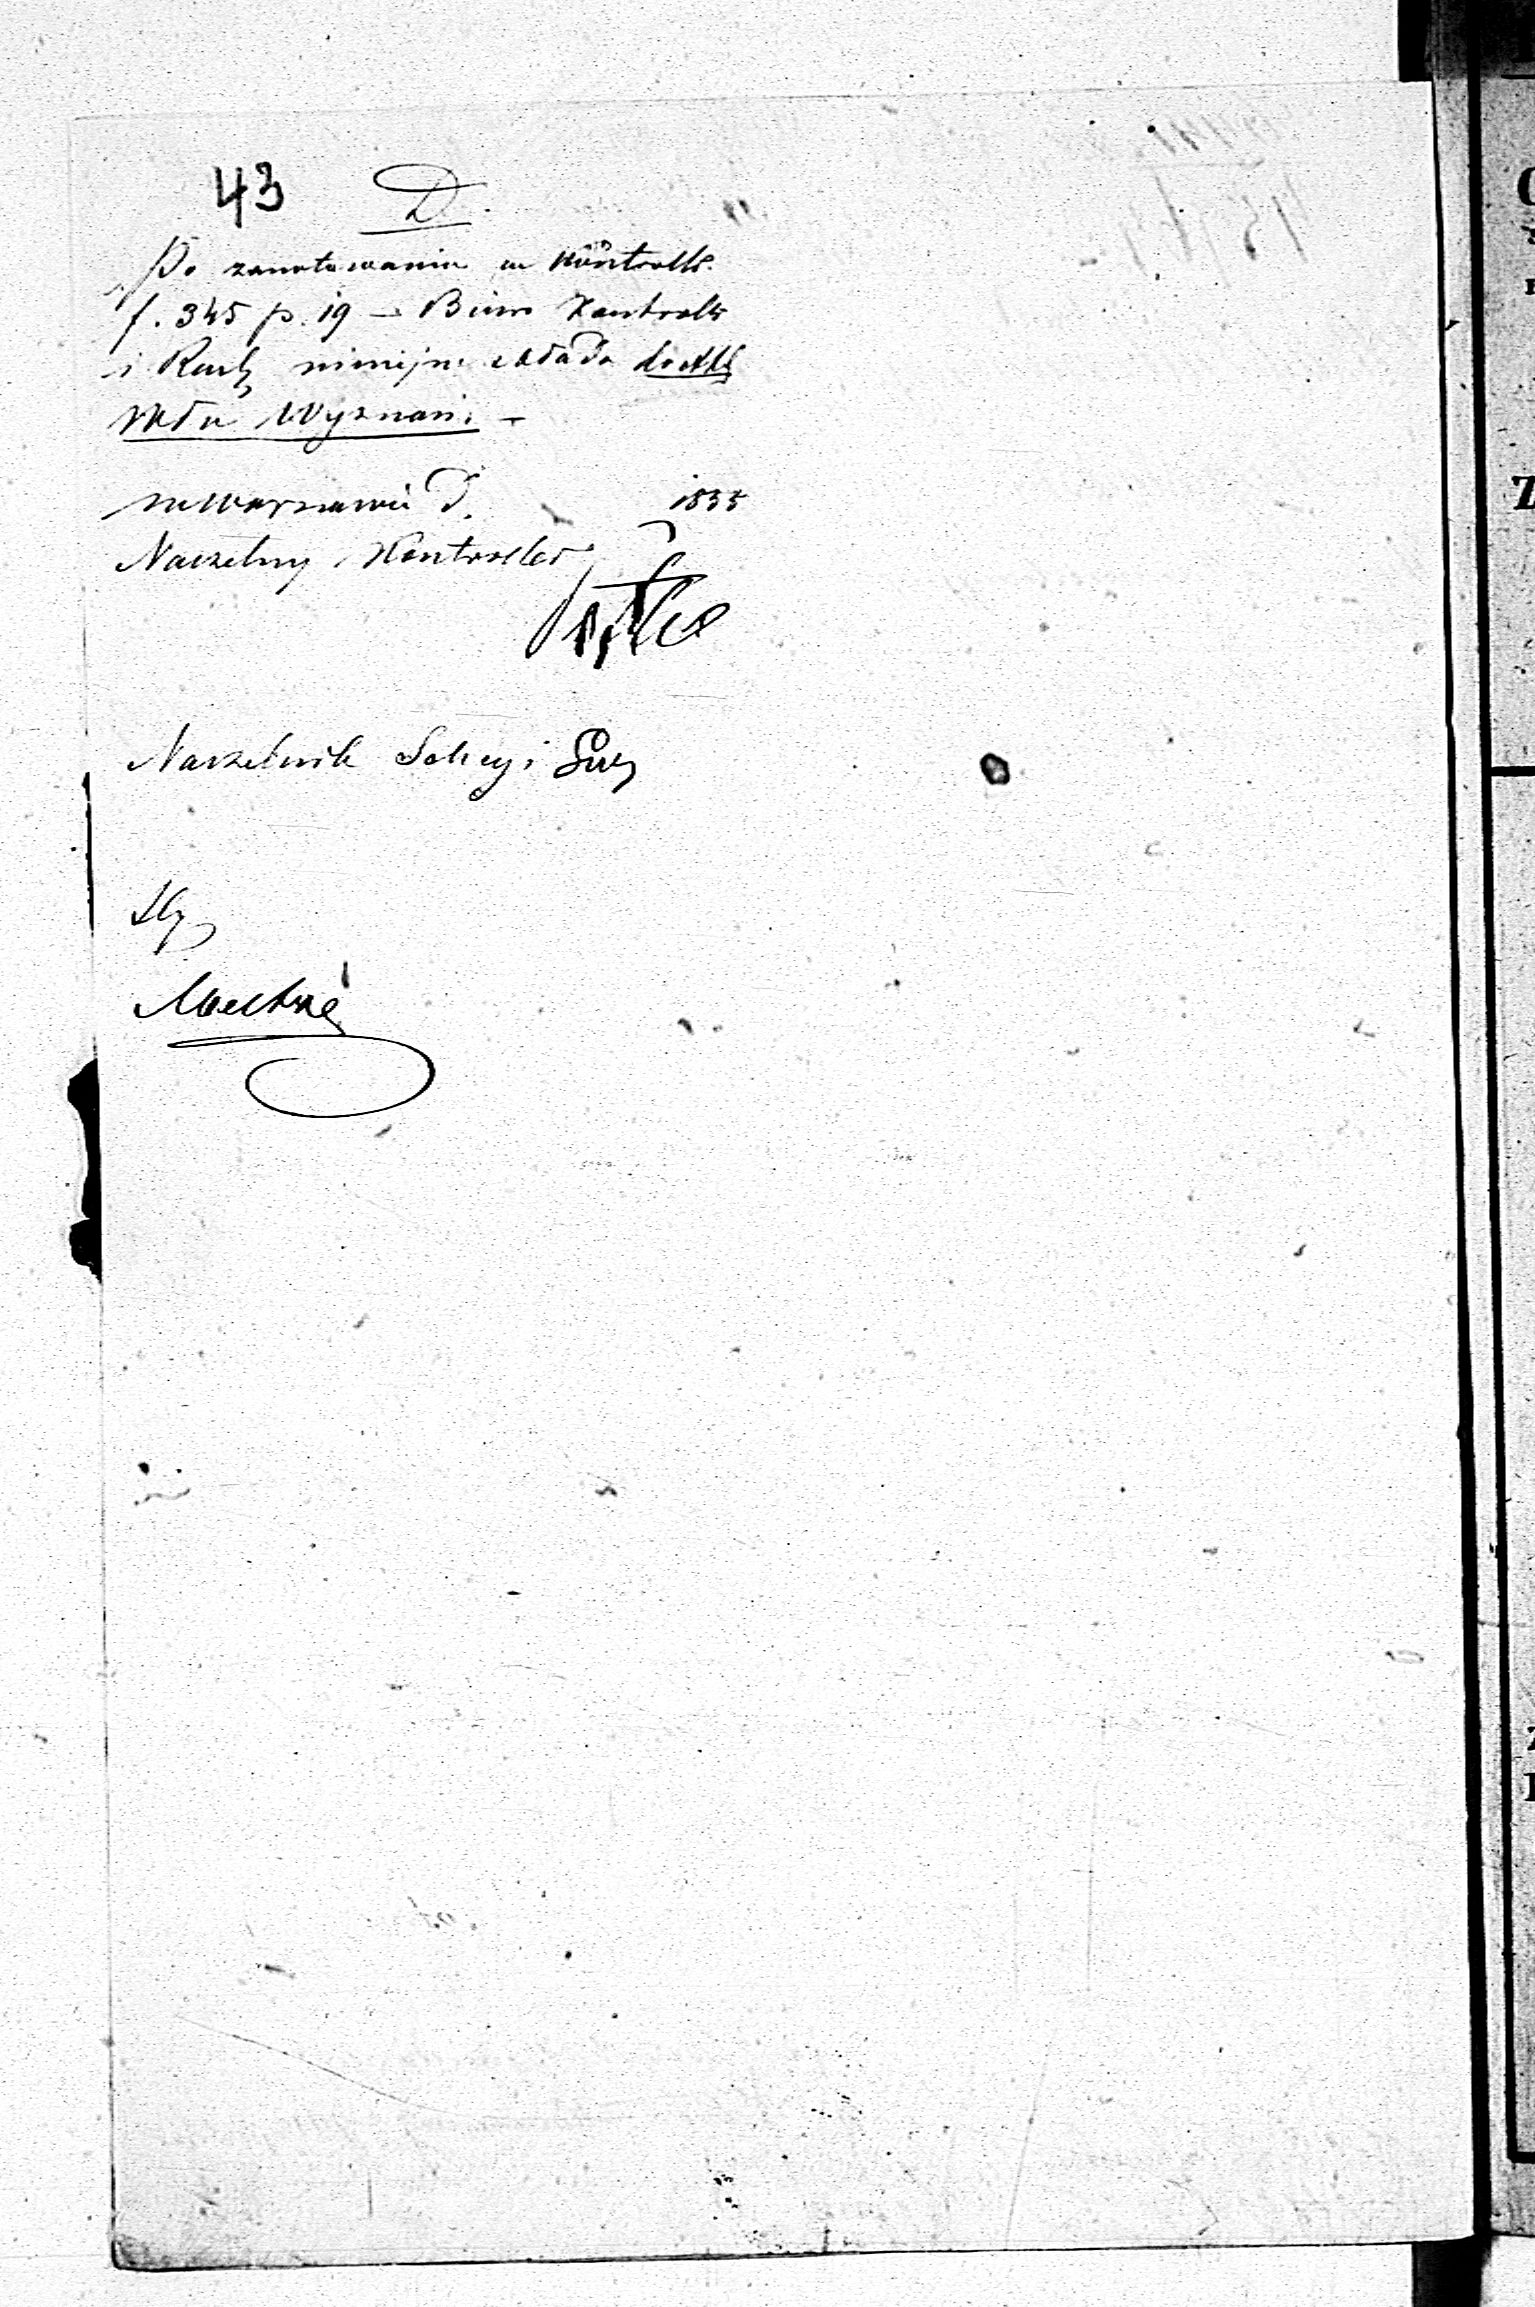 43 D.
Po zanotowaniu w Kontrolli
f. 345 p. 19 – Biuro Kontroli
i Rach niniejsze składa do Akt
Wdłu Wyznań –
w Warszawie d. 1835
Naczelny Kontroller
Naczelnik Sekcyi